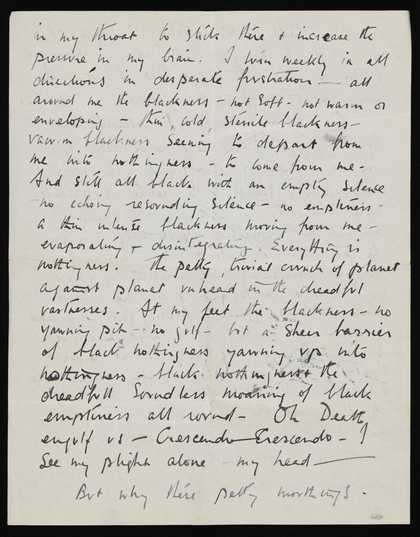 in my throat to stick there + increase the
pressure in my brain. I turn weakly in all
directions in desperate frustration – all
around me the blackness – not soft – not warm or
enveloping – thin, cold, sterile blackness –
vacuum blackness seeming to depart from
me into nothingness – to come from me –
And still all black with an empty silence
no echoing resounding silence – no emptiness –
a thin intense blackness moving from me –
evaporating + disintegrating. Everything is
nothingness. The petty, trivial crunch of planet
against planet unheard in the dreadful
vastnesses. At my feet the blackness – no
yawning pit – no gulf – but a sheer barrier
of black nothingness yawning up into
nothingness – black nothingness + the
dreadful soundless moaning of black
emptiness all round – Oh Death
engulf us – Crescendo Crescendo – I
see my plight alone – my head –
But why these petty